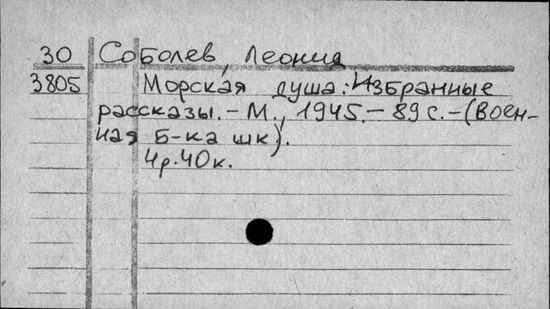 30 Соболев, Леонид
3805 Морская душа: Избранные
рассказы. - М., 1945. - 89 с. - (Воен-
ная Б-ка шк).
4р.40к.